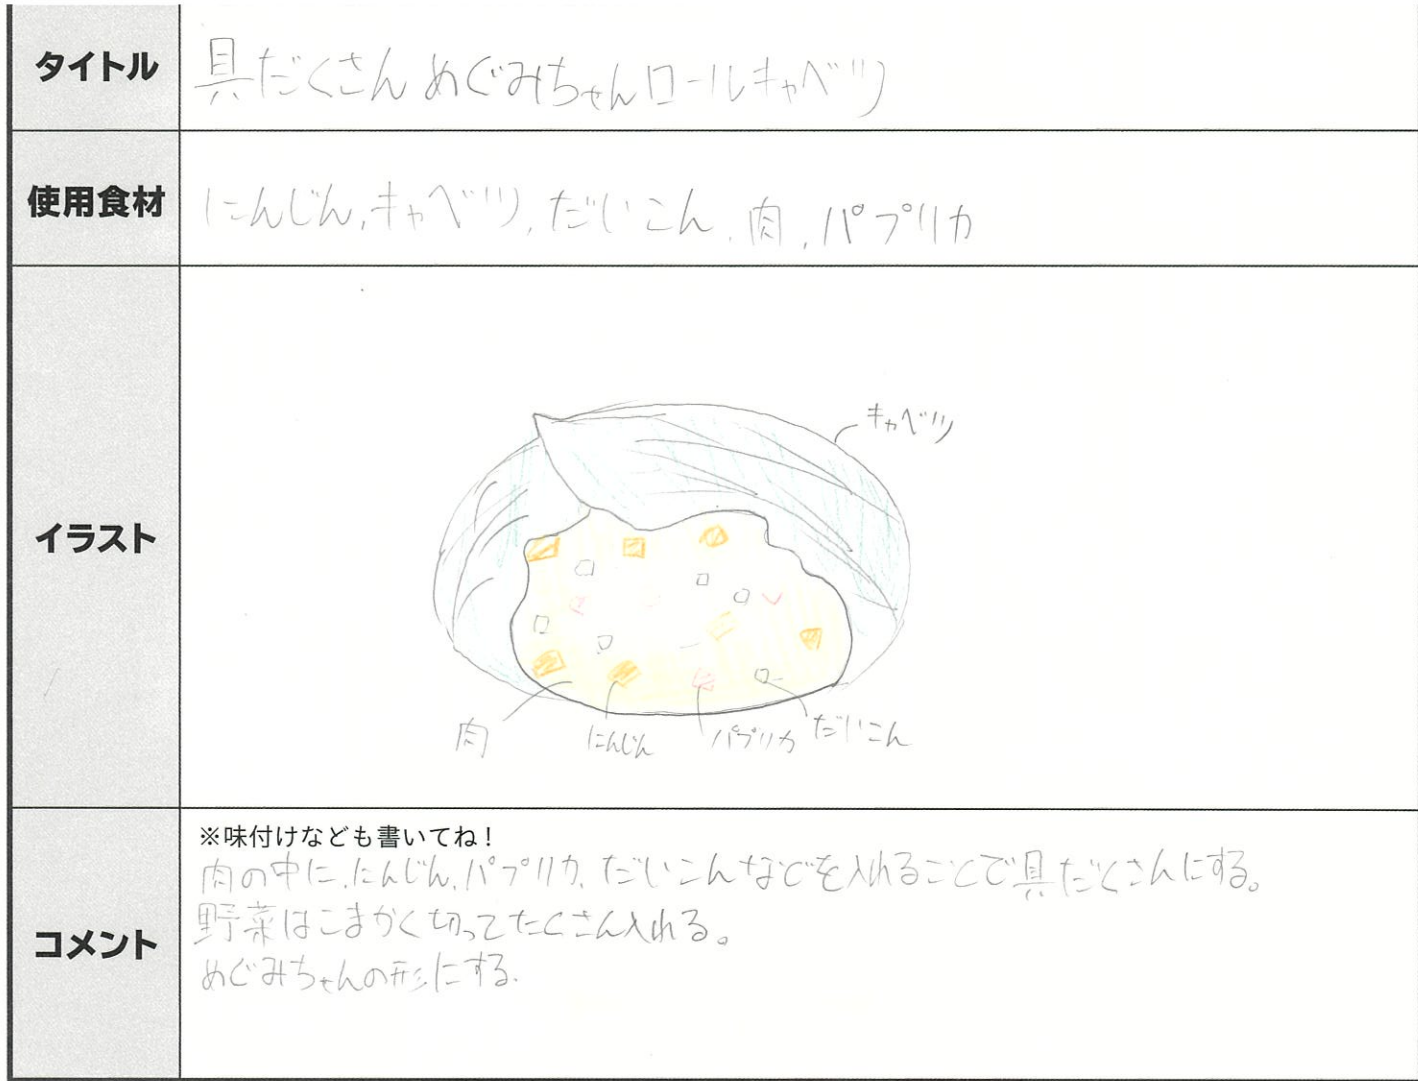 タイトル
具だくさんめぐみちゃんロールキャベツ
使用食材
にんじん,キャベツ,だいこん,肉,パプリカ
イラスト
キャベツ
肉
にんじん
パプリカ
だいこん
コメント
※味付けなども書いてね！
肉の中に、にんじん、パプリカ、だいこんなどを入れることで具だくさんにする。
野菜はこまかく切ってたくさん入れる。
めぐみちゃんの形にする.